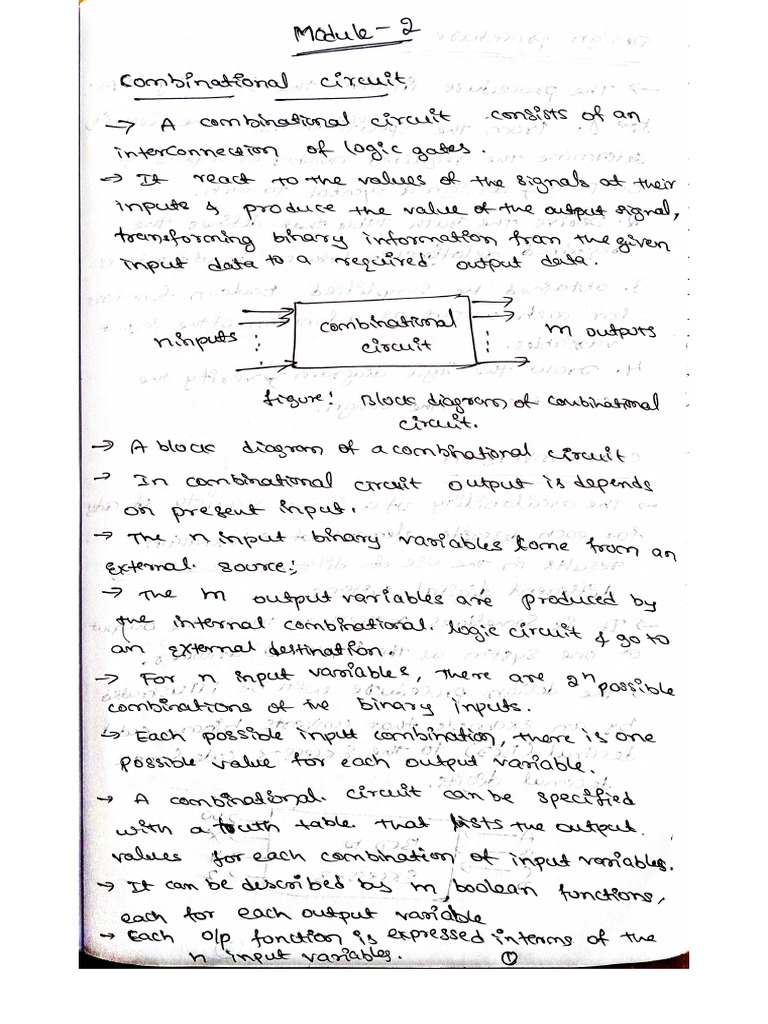 Module - 2
Combinational circuit
→ A combinational circuit consists of an
interconnection of logic gates.
→ It react to the values of the signals at their
inputs & produce the value of the output signal,
transforming binary information from the given
input data to a required output data.
n inputs
combinational
circuit
m outputs
figure: Block diagram of combinational
circuit.
→ A block diagram of a combinational circuit
→ In combinational circuit output is depends
on present input.
→ The n input binary variables come from an
external source;
→ The m output variables are produced by
the internal combinational logic circuit & go to
an external destination.
→ For n input variables, there are 2ⁿ possible
combinations of the binary inputs.
→ Each possible input combination, there is one
possible value for each output variable.
→ A combinational circuit can be specified
with a truth table that lists the output
values for each combination of input variables.
→ It can be described by m boolean functions,
each for each output variable
→ Each o/p function is expressed interms of the
n input variables.
1